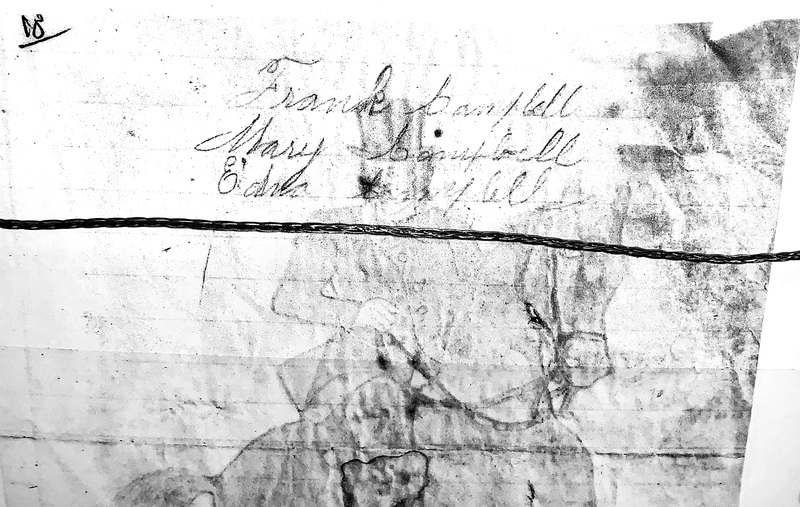 Frank Campbell
Mary Campbell
Edna Campbell